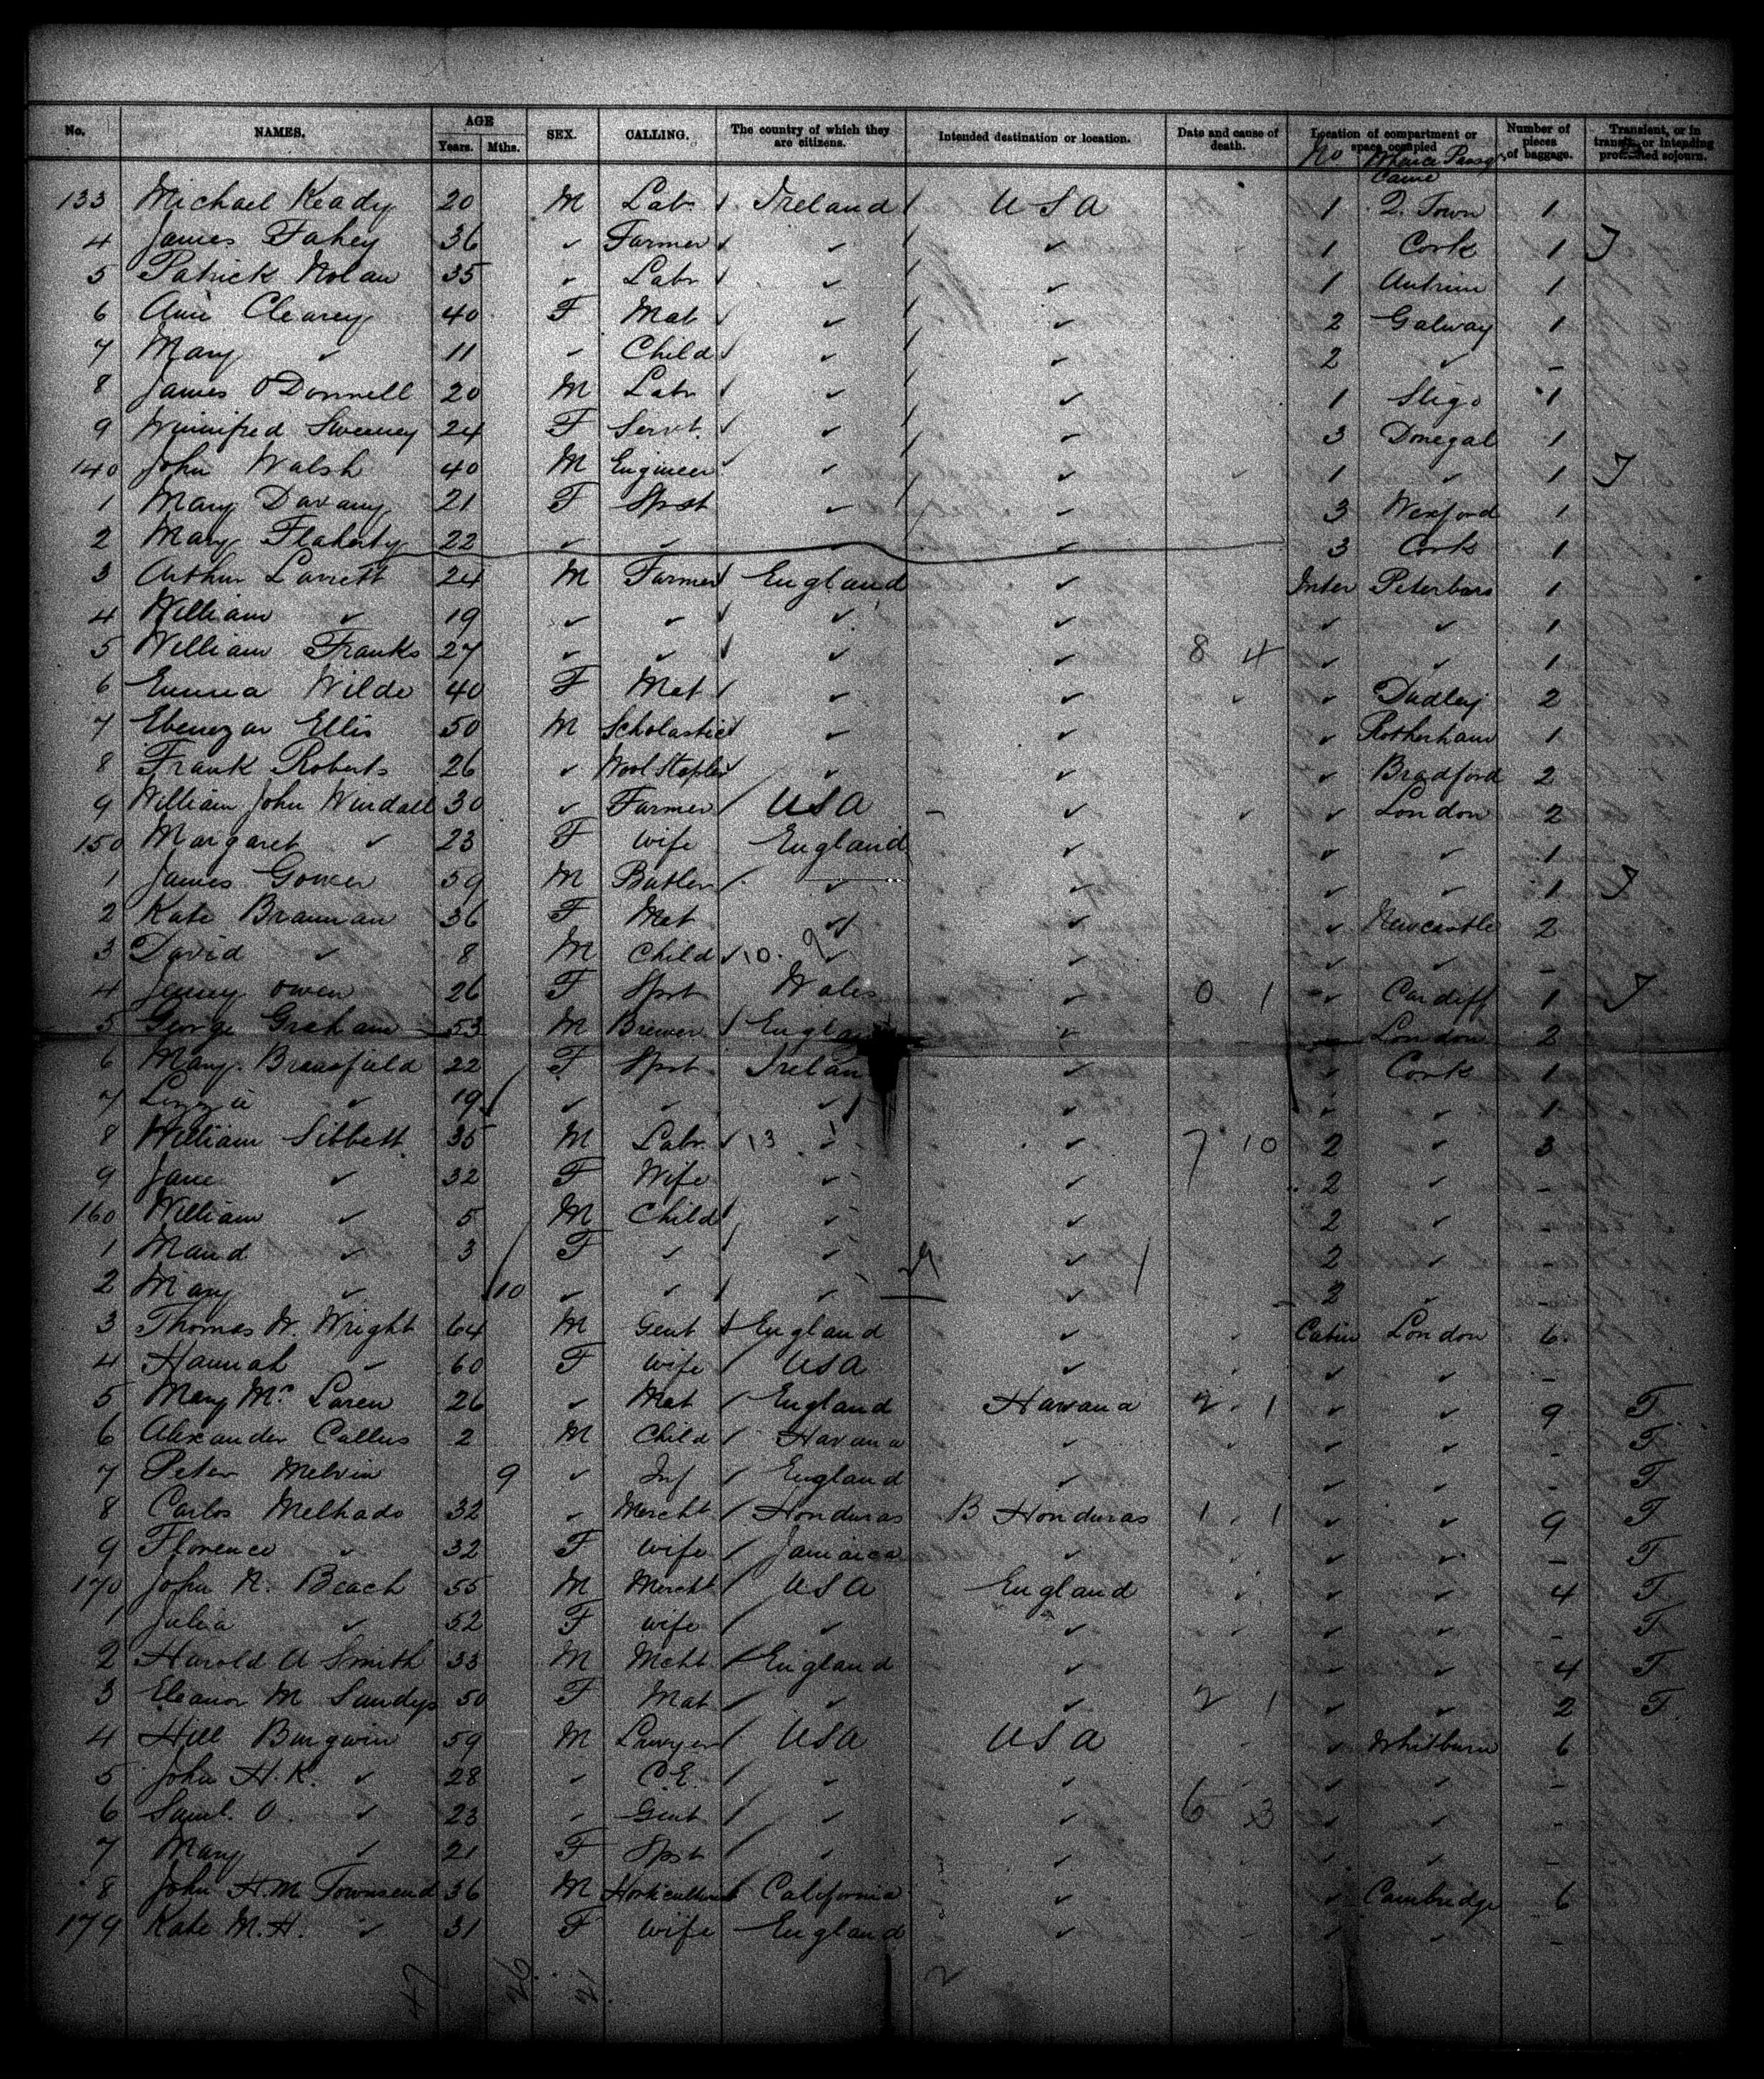 No. NAMES. AGE Years. Mths. SEX. CALLING. The country of which they are citizens. Intended destination or location. Date and cause of death. Location of compartment or space occupied Number of pieces of baggage. Transient, or in transit, or intending protracted sojourn.
No Whence Passgr Came
133 Michael Keady 20 M Labr Ireland USA 1 Q. Town 1
4 James Fahey 36 ✓ Farmer ✓ ✓ 1 Cork 1 T
5 Patrick Nolan 35 ✓ Labr ✓ ✓ 1 Antrim 1
6 Ann Clearey 40 F Mat ✓ ✓ 2 Galway 1
7 Mary ✓ 11 ✓ Child ✓ ✓ 2 ✓ -
8 James O'Donnell 20 M Labr ✓ ✓ 1 Sligo 1
9 Winnifred Sweeney 24 F Servt. ✓ ✓ 3 Donegal 1
140 John Walsh 40 M Engineer ✓ ✓ 1 ✓ 1 T
1 Mary Davany 21 F Spst ✓ ✓ 3 Wexford 1
2 Mary Flaherty 22 ✓ ✓ ✓ 3 Cork 1
3 Arthur 24 M Farmer England ✓ Inter Peterboro 1
4 William ✓ 19 ✓ ✓ ✓ ✓ ✓ ✓ 1
5 William Franks 27 ✓ ✓ ✓ ✓ 8 4 ✓ ✓ 1
6 Emma Wilde 40 F Mat ✓ ✓ ✓ Dudley 2
7 Ebenezar Ellis 50 M Scholastic ✓ ✓ ✓ Rotherham 1
8 Frank Roberts 26 ✓ Wool Stapler ✓ ✓ ✓ Bradford 2
9 William John Windall 30 ✓ Farmer USA ✓ ✓ London 2
150 Margaret ✓ 23 F Wife England ✓ ✓ ✓ 1
1 James Gower 39 M Butler ✓ ✓ ✓ ✓ 1 T
2 Kate Brannan 36 F Mat ✓ ✓ ✓ Newcastle 2
3 David ✓ 8 M Child 10 ✓ ✓ ✓ ✓ -
4 Jenny Owen 26 F Spst Wales ✓ 0 1 ✓ Cardiff 1 T
5 George Graham 53 M Brewer England ✓ London 2
6 Mary Breasfield 22 F Spst Ireland ✓ ✓ Cork 1
7 Lizzie ✓ 19 ✓ ✓ ✓ ✓ ✓ ✓ 1
8 William Sibbett 35 M Labr 13 ✓ ✓ 7 10 2 ✓ 3
9 Jane ✓ 32 F Wife ✓ ✓ 2 ✓ -
160 William ✓ 5 M Child ✓ ✓ 2 ✓ -
1 Maud ✓ 3 F ✓ ✓ ✓ 2 ✓ -
2 Mary ✓ 10 ✓ ✓ ✓ ✓ 2 ✓ -
3 Thomas W. Wright 64 M Gent England ✓ Cabin London 6
4 Hannah ✓ 60 F Wife USA ✓ ✓ ✓ -
5 Mary Mc Laren 26 ✓ Mat England Havana 2 1 ✓ ✓ 9 T
6 Alexander Callus 2 M Child Havana ✓ ✓ ✓ - T
7 Peter Melvin 9 ✓ Inf England ✓ ✓ ✓ - T
8 Carlos Melhado 32 ✓ Mercht Honduras B Honduras 1 1 ✓ ✓ 9 T
9 Florence ✓ 32 F Wife Jamaica ✓ ✓ ✓ - T
170 John N. Beach 55 M Mercht USA England ✓ ✓ 4 T
1 Julia ✓ 52 F Wife ✓ ✓ ✓ ✓ - T
2 Harold A Smith 33 M Mcht England ✓ ✓ ✓ 4 T
3 Eleanor M Sandys 50 F Mat ✓ ✓ 2 1 ✓ ✓ 2 T
4 Hill Burgwin 59 M Lawyer USA USA ✓ Whitburn 6
5 John H. K. ✓ 28 ✓ C.E. ✓ ✓ ✓ ✓ -
6 Saml. O. ✓ 23 ✓ Gent ✓ ✓ 6 3 ✓ ✓ -
7 Mary ✓ 21 F Spst ✓ ✓ ✓ ✓ -
8 John H. M Townsend 36 M Horticulturist California ✓ ✓ Cambridge 6
179 Kate M. H. ✓ 31 F Wife England ✓ ✓ ✓ -
47 26 21 2